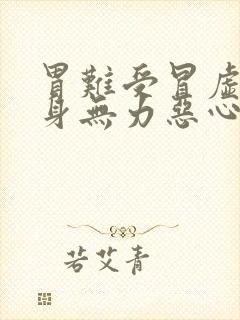 胃難受冒虛
身無力惡心
若艾青